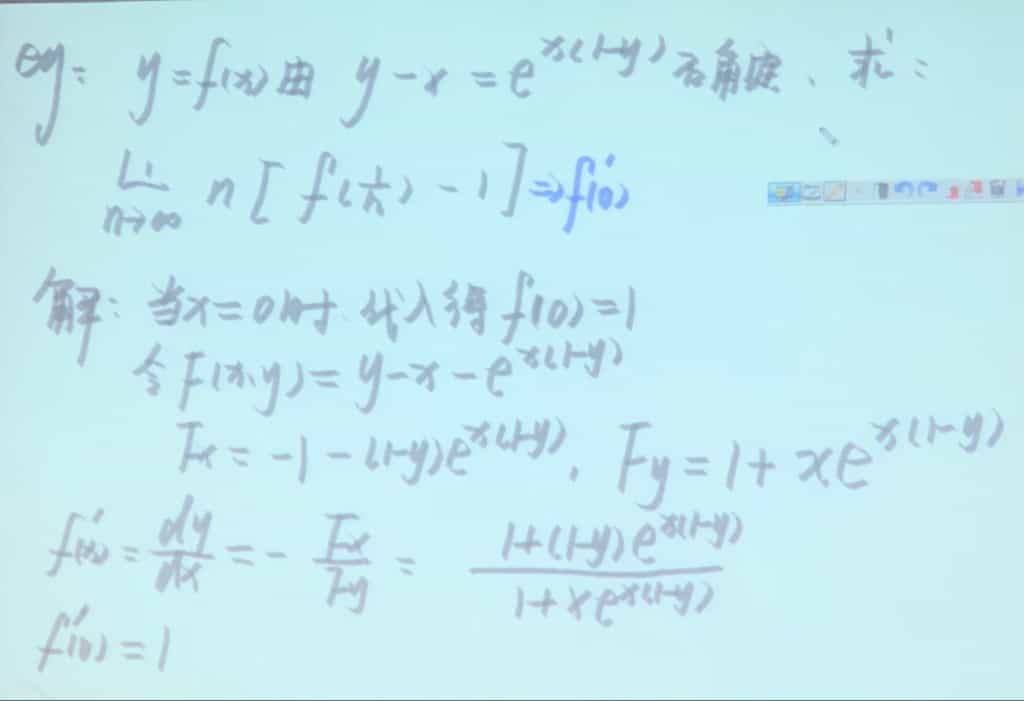 eg: y=f(x)由 y-x=e^{x(1-y)}确定、求:
lim_{n→∞} n[f(1/n)-1]⇒f'(0)
解:当x=0时、代入得f(0)=1
令F(x,y)=y-x-e^{x(1-y)}
Fx=-1-(1-y)e^{x(1-y)}, Fy=1+xe^{x(1-y)}
f'(x)=dy/dx=-Fx/Fy=(1+(1-y)e^{x(1-y)})/(1+xe^{x(1-y)})
f'(0)=1